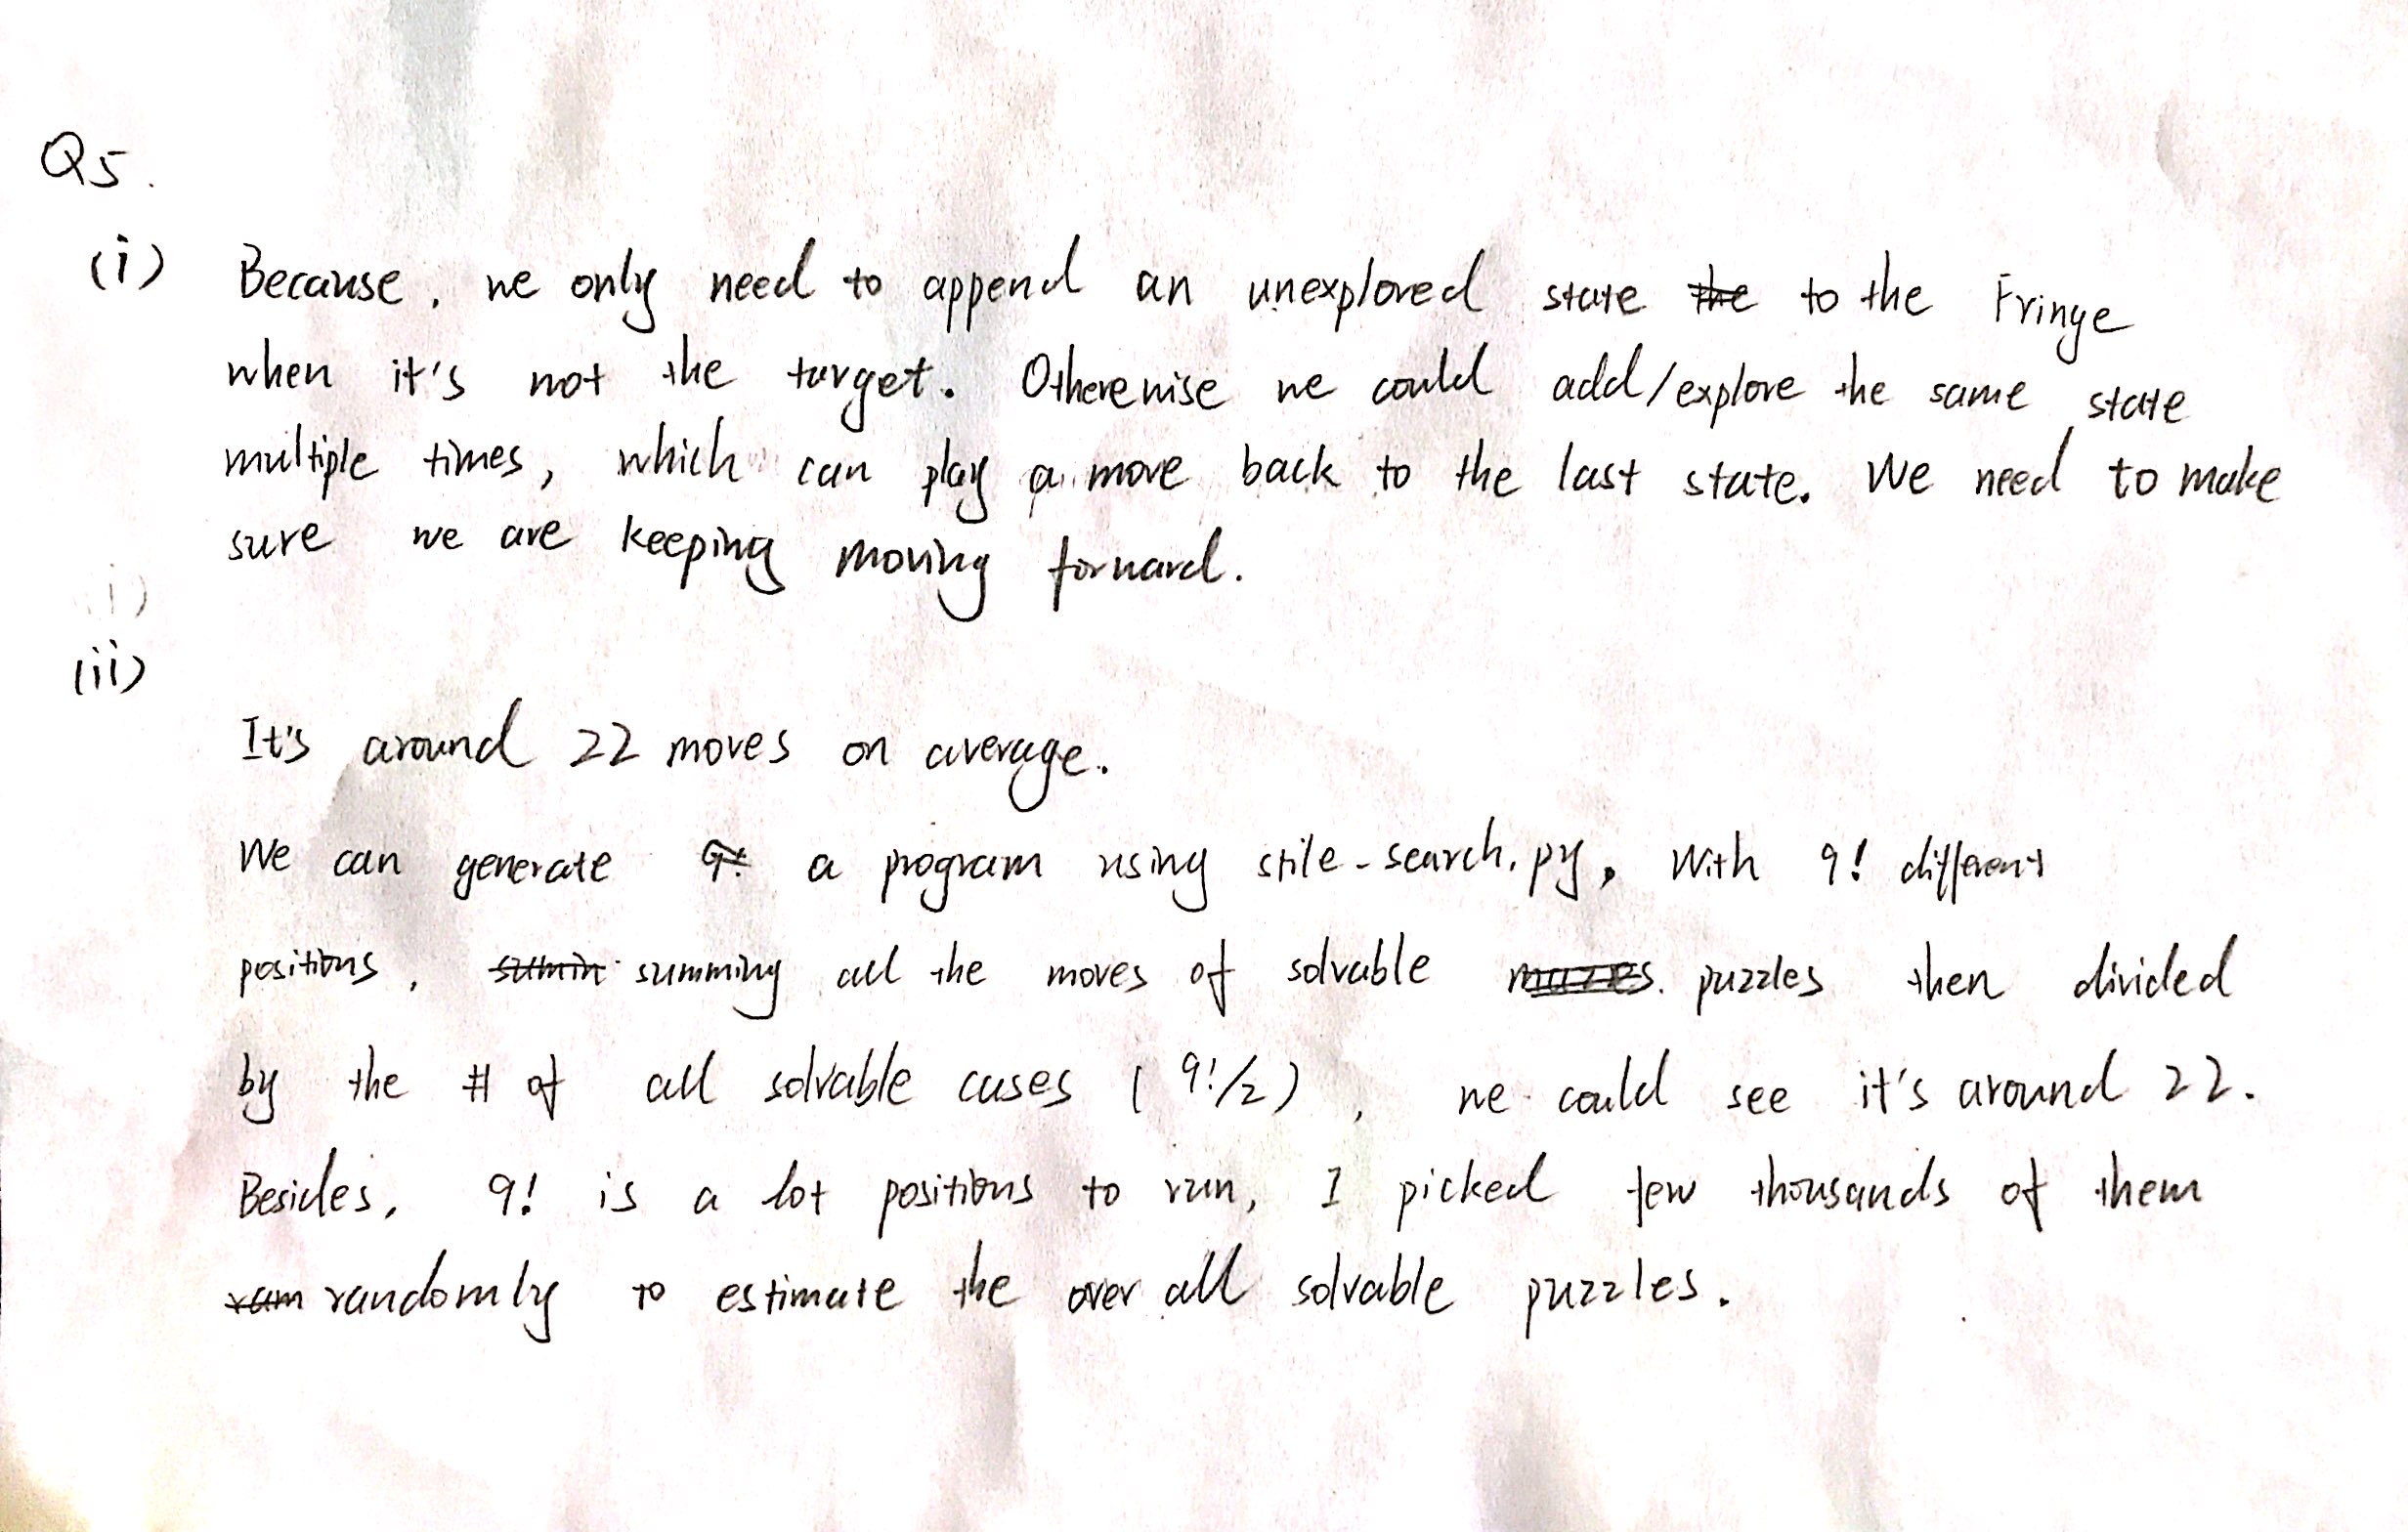 Q5.
(i) Because, we only need to append an unexplored state the to the Fringe
when it's not the target. Otherewise we could add/explore the same state
multiple times, which can play a move back to the last state. We need to make
sure we are keeping moving forward.
i)
(ii)
It's around 22 moves on average.
We can generate 9! a program using stile-search.py, With 9! different
positions, sumin summing all the moves of solvable mazes puzzles then divided
by the # of all solvable cases (9!/2), we could see it's around 22.
Besides, 9! is a lot positions to run, I picked few thousands of them
ram randomly to estimate the over all solvable puzzles.